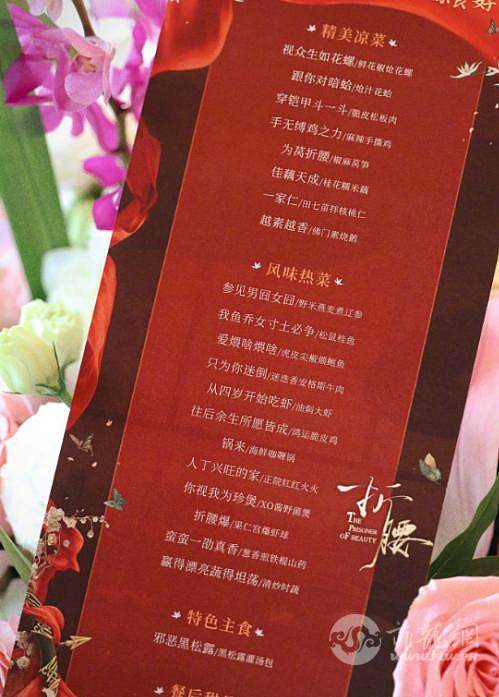 精美凉菜
视众生如花螺/鲜花椒炝花螺
跟你对暗蛤/炝汁花蛤
穿铠甲斗一斗/脆皮松板肉
手无缚鸡之力/麻辣手撕鸡
为莴折腰/椒麻莴笋
佳藕天成/桂花糯米藕
一家仁/田七苗拌核桃仁
越素越香/佛门素烧鹅
风味热菜
参见男囧女囧/野米燕麦煮辽参
我鱼乔女寸土必争/松鼠桂鱼
爱煨啥煨啥/虎皮尖椒煨鲍鱼
只为你迷倒/迷迭香安格斯牛肉
从四岁开始吃虾/油焖大虾
往后余生所愿皆成/鸿运脆皮鸡
锅来/海鲜咖喱锅
人丁兴旺的家/正院红红火火
你视我为珍煲/XO酱野菌煲
折腰爆/果仁宫爆虾球
蛮蛮一劭真香/葱香煎铁棍山药
赢得漂亮蔬得坦荡/清炒时蔬
折腰
THE
PRISONER
OF BEAUTY
特色主食
邪恶黑松露/黑松露灌汤包